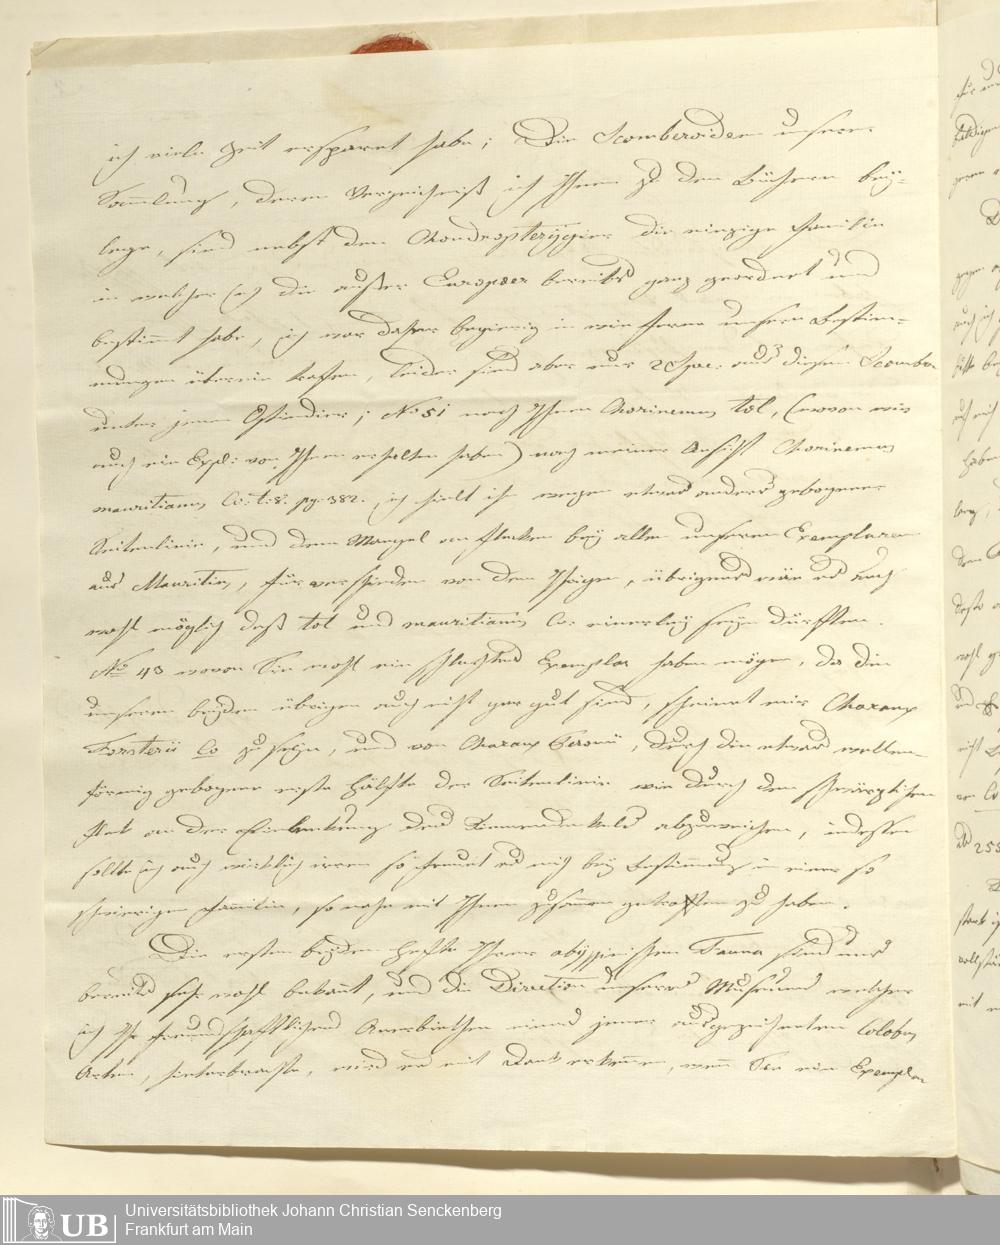 ich viele Zeit erspart habe; Die Scomberoiden unserer
Sammlung, deren Verzeichniß ich Ihnen zu den Büchern bey-
lege, sind nebst den Chondropterÿgier die einzige Familie
in welcher ich die außer Europäer bereits ganz geordnet und
bestimt habe, ich war daher begierig in wie ferne unsere Bestim-
mungen überein treffen, leider sind aber nur 2 Spec. aus diesen Scomber
unter jenen Ostindier; No 51 nach Ihnen Chorinemus tol, (wovon wir
auch ein Expl: von Ihnen erhalten haben) nach meiner Ansicht Chorinemus
mauritianus Cv. t: 8. pg. 382. ich hielt ihn wegen etwas anders gebogener
Seitenlinie, und dem Mangel an Flecken beÿ allen unseren Exemplaren
aus Mauritius, für verschieden von dem Ihrigen, übrigens wäre es auch
wohl möglich daß tol und mauritianus Cv. einerleÿ seÿn dürfften.
No 43 wovon Sie wohl ein schlechtes Exemplar haben mögen, da die
unseren beÿden übrigen auch nicht gar gut sind, scheint mir Caranx
Forsterii Cv zu seÿn, und von Caranx Peronii, durch die etwas wellen-
förmig gebogene erste Hälfte der Seitenlinie wie durch den schwärzlichen
Flek an der Einlenkung des Kiemendekels abzuweichen, indessen
sollte ich auch wirklich irren so freuet es mich beÿ Bestimmung in einer so
schwierigen Familie, so nahe mit Ihnen zusamen getroffen zu haben.
Die ersten beÿden Hefte Ihrer abÿssinischen Fauna sind uns
bereits sehr wohl bekant, und die Direction unseres Museums welcher
ich Ihr freundschafftliches Anerbiethen eines jener ausgezeichneten Colobus
Arten, hinterbrachte, wird es mit Dank erkenen, wenn Sie ein Exemplar
Universitätsbibliothek Johann Christian Senckenberg
Frankfurt am Main
UB